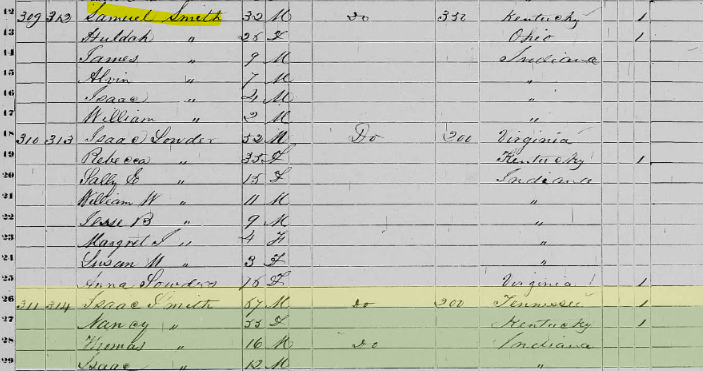 12 309 312 Samuel Smith 32 M Do 350 Kentucky 1
13 Huldah " F Ohio 1
14 James " 9 M Indiana
15 Alvin " 7 M "
16 Isaac " 4 M "
17 William " 2 M "
18 310 313 Isaac Lowder 52 M Do 200 Virginia
19 Rebecca " 35 F Kentucky 1
20 Sally E " 15 F Indiana
21 William W " 11 M "
22 Jesse B " 9 M "
23 Margret J " 4 F "
24 Susan M " 3 F "
25 Anna F Virginia 1
26 311 314 Isaac Smith M Do 200 Tennessee 1
27 Nancy " 55 F Kentucky 1
28 Thomas " 16 M Do Indiana
29 Isaac " 12 M "